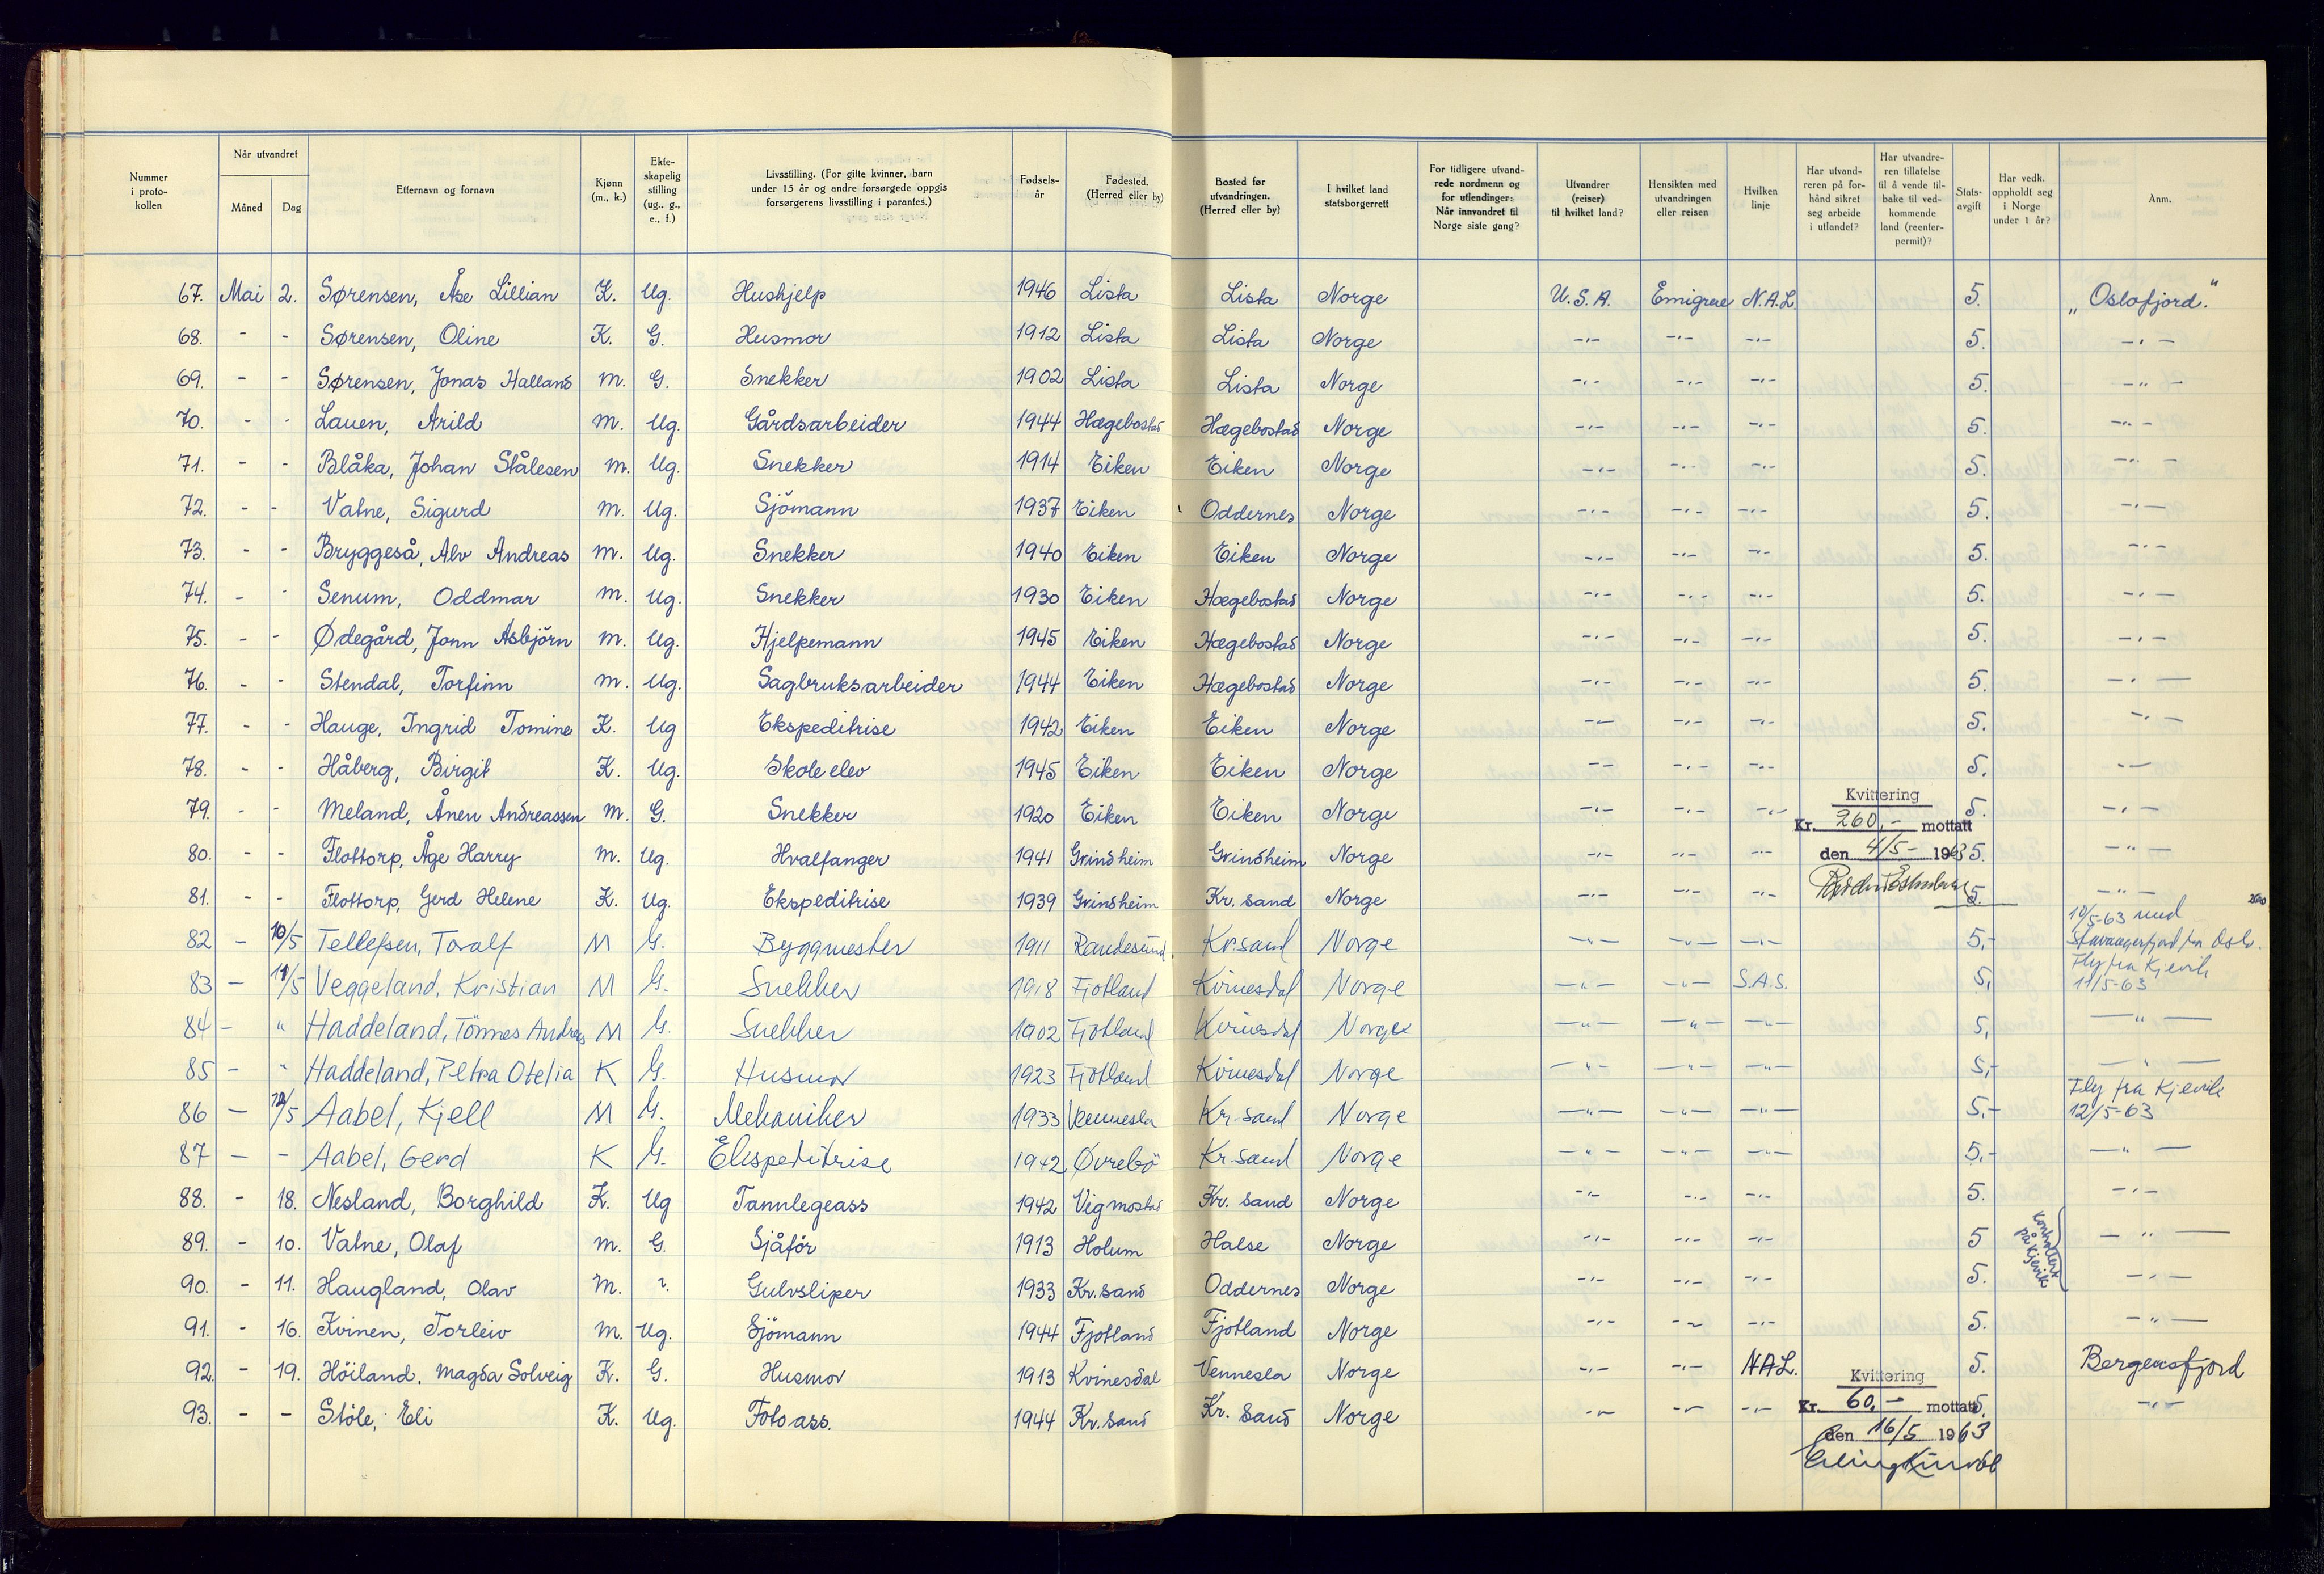 Nummer i protokollen | Når utvandret Måned | Dag | Etternavn og fornavn | Kjønn (m., k.) | Ekteskapelig stilling (ug., g., e., f.) | Livsstilling. (For gifte kvinner, barn under 15 år og andre forsørgede oppgis forsørgerens livsstilling i parantes.) | Fødselsår | Fødested, (Herred eller by) | Bosted før utvandringen. (Herred eller by) | I hvilket land statsborgerrett | For tidligere utvandrede nordmenn og for utlendinger: Når innvandret til Norge siste gang? | Utvandrer (reiser) til hvilket land? | Hensikten med utvandringen eller reisen | Hvilken linje | Har utvandreren på forhånd sikret seg arbeide i utlandet? | Har utvandreren tillatelse til å vende tilbake til vedkommende land (reenterpermit)? | Statsavgift | Har vedk. oppholdt seg i Norge under 1 år? | Anm.
67. Mai 2. Sørensen, Åse Lillian K. Ug. Hushjelp 1946 Lista Lista Norge U.S.A. Emigrere N.A.L. 5. „Oslofjord."
68. - - Sørensen, Oline K. G. Husmor 1912 Lista Lista Norge -"- -"- -"- 5. -"-
69. - - Sørensen, Jonas Halland m. G. Snekker 1902 Lista Lista Norge -"- -"- -"- 5. -"-
70. - - Lauen, Arild m. Ug. Gårdsarbeider 1944 Hægebostad Hægebostad Norge -"- -"- -"- 5. -"-
71. - - Blåka, Johan Stålesen m. Ug. Snekker 1914 Eiken Eiken Norge -"- -"- -"- 5. -"-
72. - - Vatne, Sigurd m. Ug. Sjömann 1937 Eiken Oddernes Norge -"- -"- -"- 5. -"-
73. - - Bryggeså, Alv Andreas m. Ug. Snekker 1940 Eiken Eiken Norge -"- -"- -"- 5. -"-
74. - - Senum, Oddmar m. Ug. Snekker 1930 Eiken Hægebostad Norge -"- -"- -"- 5. -"-
75. - - Ødegård, Jonn Asbjörn m. Ug. Hjelpemann 1945 Eiken Hægebostad Norge -"- -"- -"- 5. -"-
76. - - Stendal, Torfinn m. Ug. Sagbruksarbeider 1944 Eiken Hægebostad Norge -"- -"- -"- 5. -"-
77. - - Hauge, Ingrid Tomine K. Ug Ekspeditrise 1942 Eiken Eiken Norge -"- -"- -"- 5. -"-
78. - - Håberg, Birgit K. Ug. Skoleelev 1945 Eiken Eiken Norge -"- -"- -"- 5. -"-
79. - - Meland, Ånen Andreassen m. G. Snekker 1920 Eiken Eiken Norge -"- -"- -"- 5. -"-
Kvittering
Kr. 260,- mottatt
80. - - Flottorp, Åge Harry m. Ug. Hvalfanger 1941 Grindheim Grindheim Norge -"- -"- -"- 5. -"-
den 4/5- 1963
81. - - Flottorp, Gerd Helene K. Ug. Ekspeditrise 1939 Grindheim Kr. sand Norge -"- -"- -"- 5. -"-
82 - 10/5 Tellefsen, Toralf M G. Byggmester 1911 Randesund Kr.sand Norge -"- -"- -"- 5,- 10/5-63 med Stavangerfjord fra Oslo.
83 - 11/5 Veggeland, Kristian M G. Snekker 1918 Fjotland Kvinesdal Norge -"- -"- S.A.S. 5, Fly fra Kjevik 11/5-63
84 - " Haddeland, Tönnes Andreas M G. Snekker 1902 Fjotland Kvinesdal Norge -"- -"- -"- 5, -"-
85 - " Haddeland, Petra Otelia K G. Husmor 1923 Fjotland Kvinesdal Norge -"- -"- -"- 5,- -"-
86 - 12/5 Aabel, Kjell M G. Mekaniker 1933 Vennesla Kr.sand Norge -"- -"- -"- 5,- Fly fra Kjevik 12/5-63
87 - - Aabel, Gerd K G. Ekspeditrise 1942 Øvrebö Kr.sand Norge -"- -"- -"- 5,- -"-
88. - 18. Nesland, Borghild K. Ug Tannlegeass 1942 Vigmostad Kr. sand Norge -"- -"- -"- 5. -"-
89. - 10. Vatne, Olaf m. G. Sjåför 1913 Holum Halse Norge -"- -"- -"- 5 -"-
Kontrollert på Kjevik
90. - 11. Haugland, Olav M. ? Gulvsliper 1933 Kr. sand Oddernes Norge -"- -"- -"- 5. -"-
91. - 16. Kvinen, Torleiv m. Ug. Sjömann 1944 Fjotland Fjotland Norge -"- -"- -"- 5. -"-
92. - 19. Höiland. Magda Solveig K. G. Husmor 1913 Kvinesdal Vennesla Norge -"- -"- N.A.L. 5. Bergensfjord
Kvittering
93. - - Stöle, Eli K. Ug. Fotoass. 1944 Kr. sand Kr. Sand Norge -"- -"- -"- 5. -"-
Kr. 60,- mottatt
den 16/5 1963